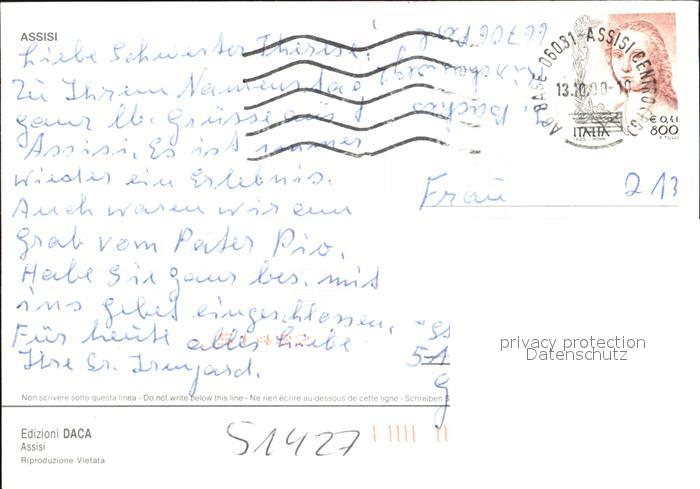 ASSISI
Liebe Schwester Therese!
Zu Ihrem Namenstag
ganz lb. Grüsse aus
Assisi. Es ist immer
wieder ein Erlebnis.
Auch waren wir am
Grab vom Pater Pio.
Habe Sie ganz bes. mit
ins Gebet eingeschlossen.
Für heute alles Liebe
Ihre Sr. Irmgard.
AG BASE 06081 ASSISI CENTRO (PG)
13.10.00-19
€ 0,41
ITALIA 800
Frau 213
privacy protection
Datenschutz
Non scrivere sotto questa linea - Do not write below this line - Ne rien écrire au-dessous de cette ligne - Schreiben S
Edizioni DACA
Assisi
Riproduzione Vietata
51427